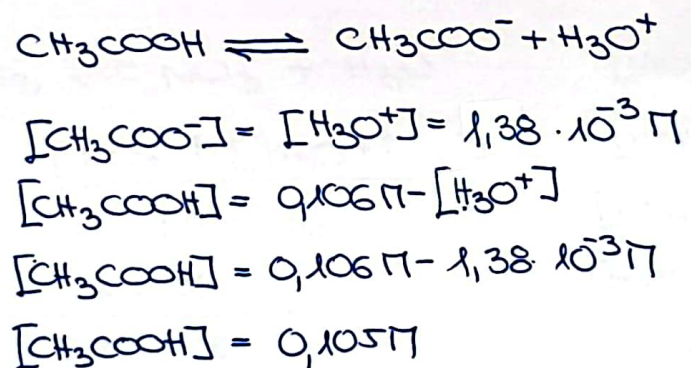 CH₃COOH ⇌ CH₃COO⁻ + H₃O⁺
[CH₃COO⁻] = [H₃O⁺] = 1,38 · 10⁻³ M
[CH₃COOH] = 0,106 M - [H₃O⁺]
[CH₃COOH] = 0,106 M - 1,38 · 10⁻³ M
[CH₃COOH] = 0,105 M